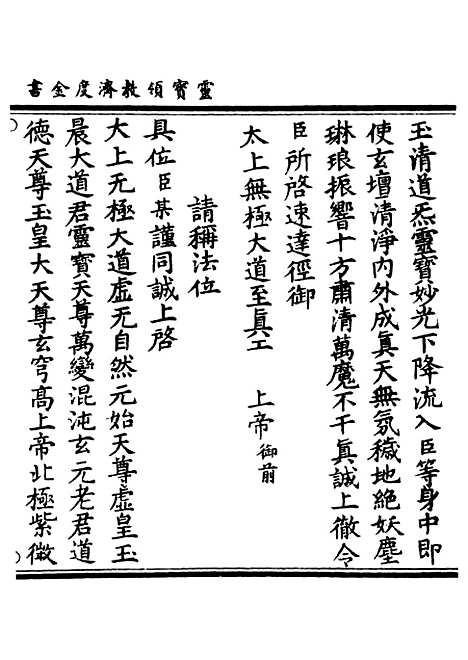 靈寶領教濟度金書
玉清道炁靈寶妙光下降流入臣等身中即
使玄壇清淨內外成真天無氛穢地絕妖塵
琳琅振響十方肅清萬魔不干真誠上徹令
臣所啓速達徑御
太上無極大道至真工　上帝御前
請稱法位
具位臣某謹同誠上啓
大上无極大道虛无自然元始天尊虛皇玉
晨大道君靈寶天尊萬變混沌玄元老君道
德天尊玉皇大天尊玄穹高上帝北極紫微